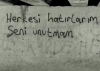 Herkesi hatırlarım
Seni unutmam